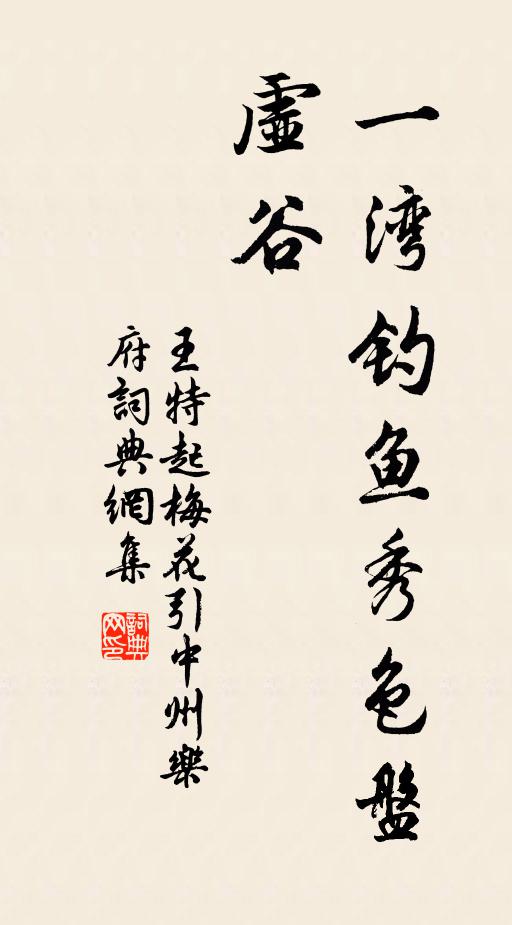 一湾钓鱼秀色盤
虛谷
王特起梅花引中州樂
府詞典網集
詞典网印